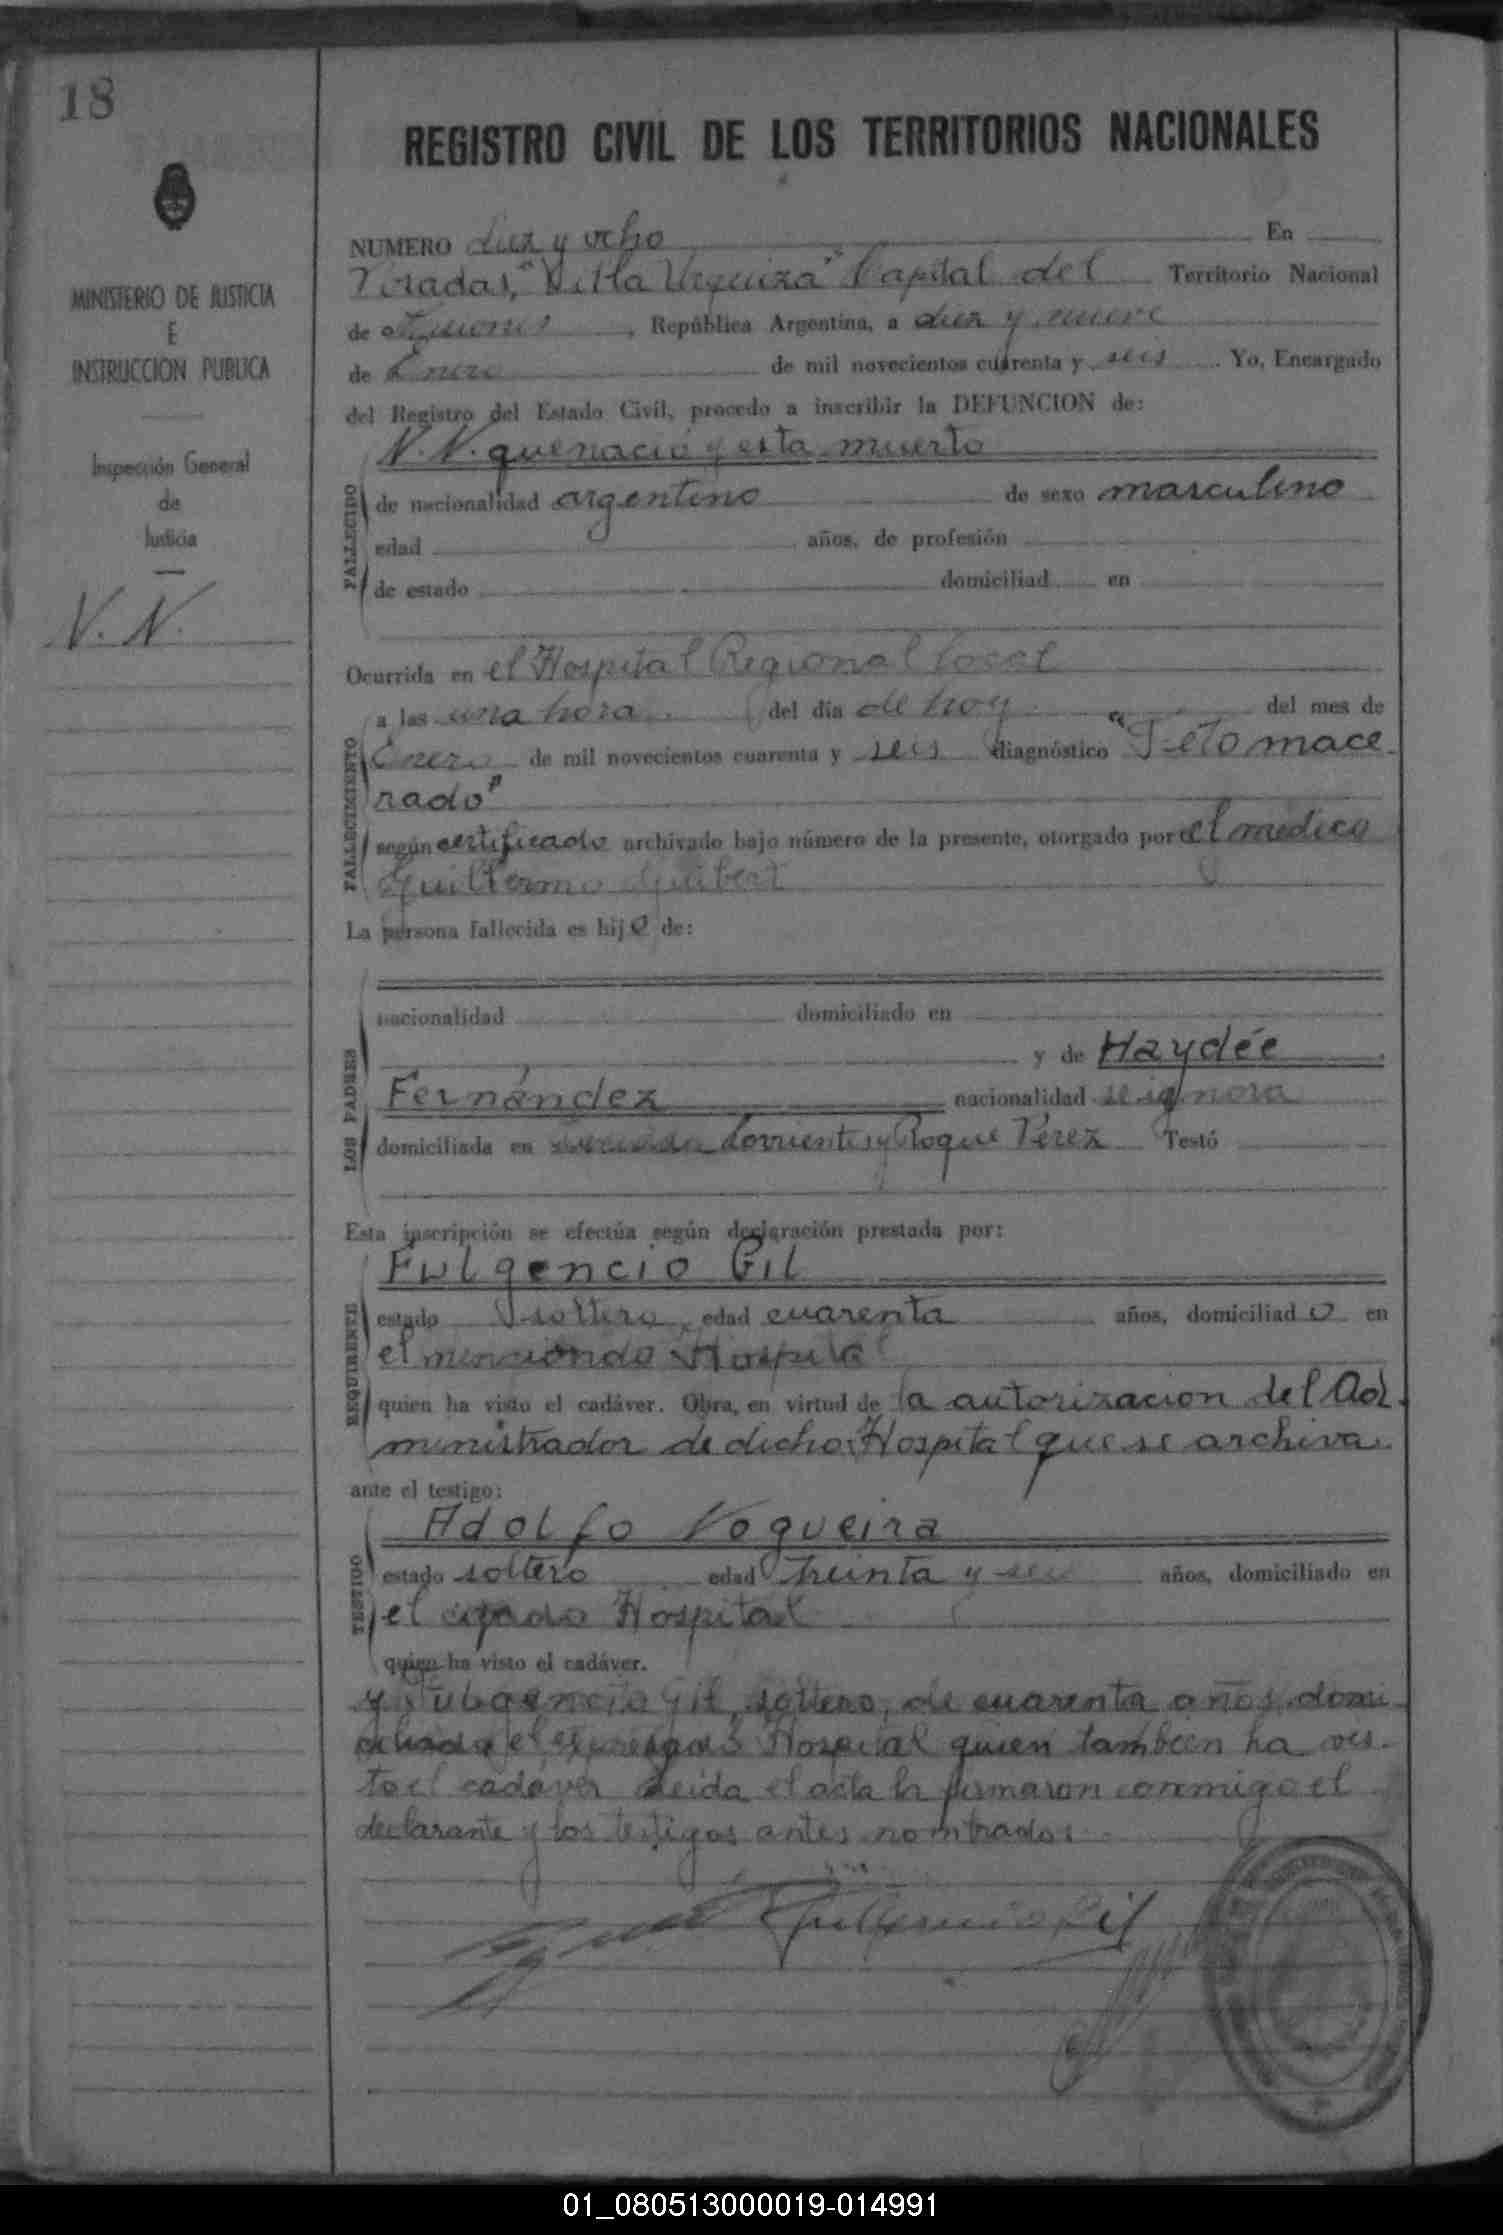 18
REGISTRO CIVIL DE LOS TERRITORIOS NACIONALES
MINISTERIO DE JUSTICIA
E
INSTRUCCION PUBLICA
Inspección General
de
Justicia
N. N.
NUMERO diez y ocho En
Posadas, "Villa Urquiza" Capital del Territorio Nacional
de Misiones, República Argentina, a diez y nueve
de Enero de mil novecientos cuarenta y seis. Yo, Encargado
del Registro del Estado Civil, procedo a inscribir la DEFUNCION de:
N. N. que nació y esta muerto
FALLECIDO
de nacionalidad argentino de sexo masculino
edad años, de profesión
de estado domiciliad en
Ocurrida en el Hospital Regional local
FALLECIMIENTO
a las una hora del día de hoy del mes de
Enero de mil novecientos cuarenta y seis diagnóstico "Feto mace-
rado"
según certificado archivado bajo número de la presente, otorgado por el médico
Guillermo Guibert
La persona fallecida es hijo de:
LOS PADRES
nacionalidad domiciliado en
y de Haydée
Fernández nacionalidad se ignora
domiciliada en Corrientes y Roque Pérez Testó
Esta inscripción se efectúa según declaración prestada por:
REQUIRENTE
Fulgencio Gil
estado soltero, edad cuarenta años, domiciliado en
el mencionado Hospital
quien ha visto el cadáver. Obra, en virtud de la autorizacion del Ad-
ministrador de dicho Hospital que se archiva
ante el testigo:
TESTIGO
Adolfo Nogueira
estado soltero edad treinta y seis años, domiciliado en
el citado Hospital
quien ha visto el cadáver.
y Fulgencio Gil, soltero, de cuarenta años, domi-
ciliado el expresado Hospital quien tambien ha vis-
to el cadáver Leida el acta la firmaron conmigo el
declarante y los testigos antes nombrados
Fulgencio Gil
01_080513000019-014991